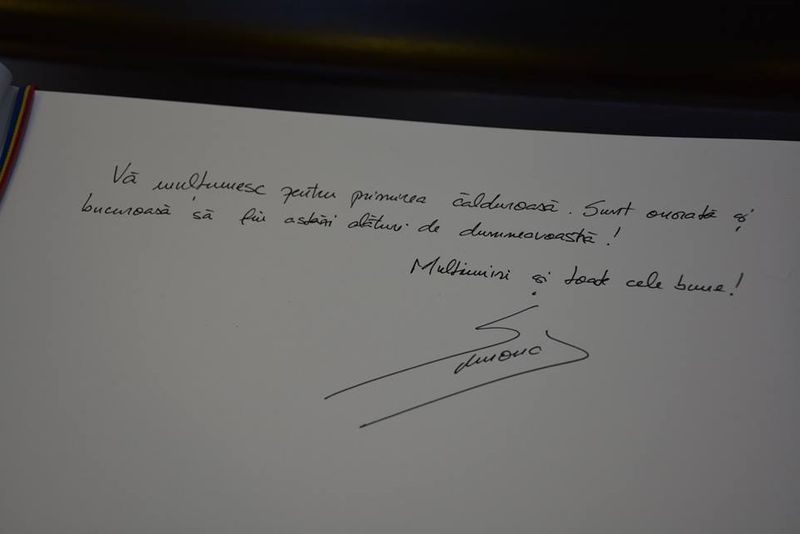 Vă mulțumesc pentru primirea călduroasă. Sunt onorată și
bucuroasă să fiu astăzi alături de dumneavoastă!
Mulțumiri și toate cele bune!
Simona